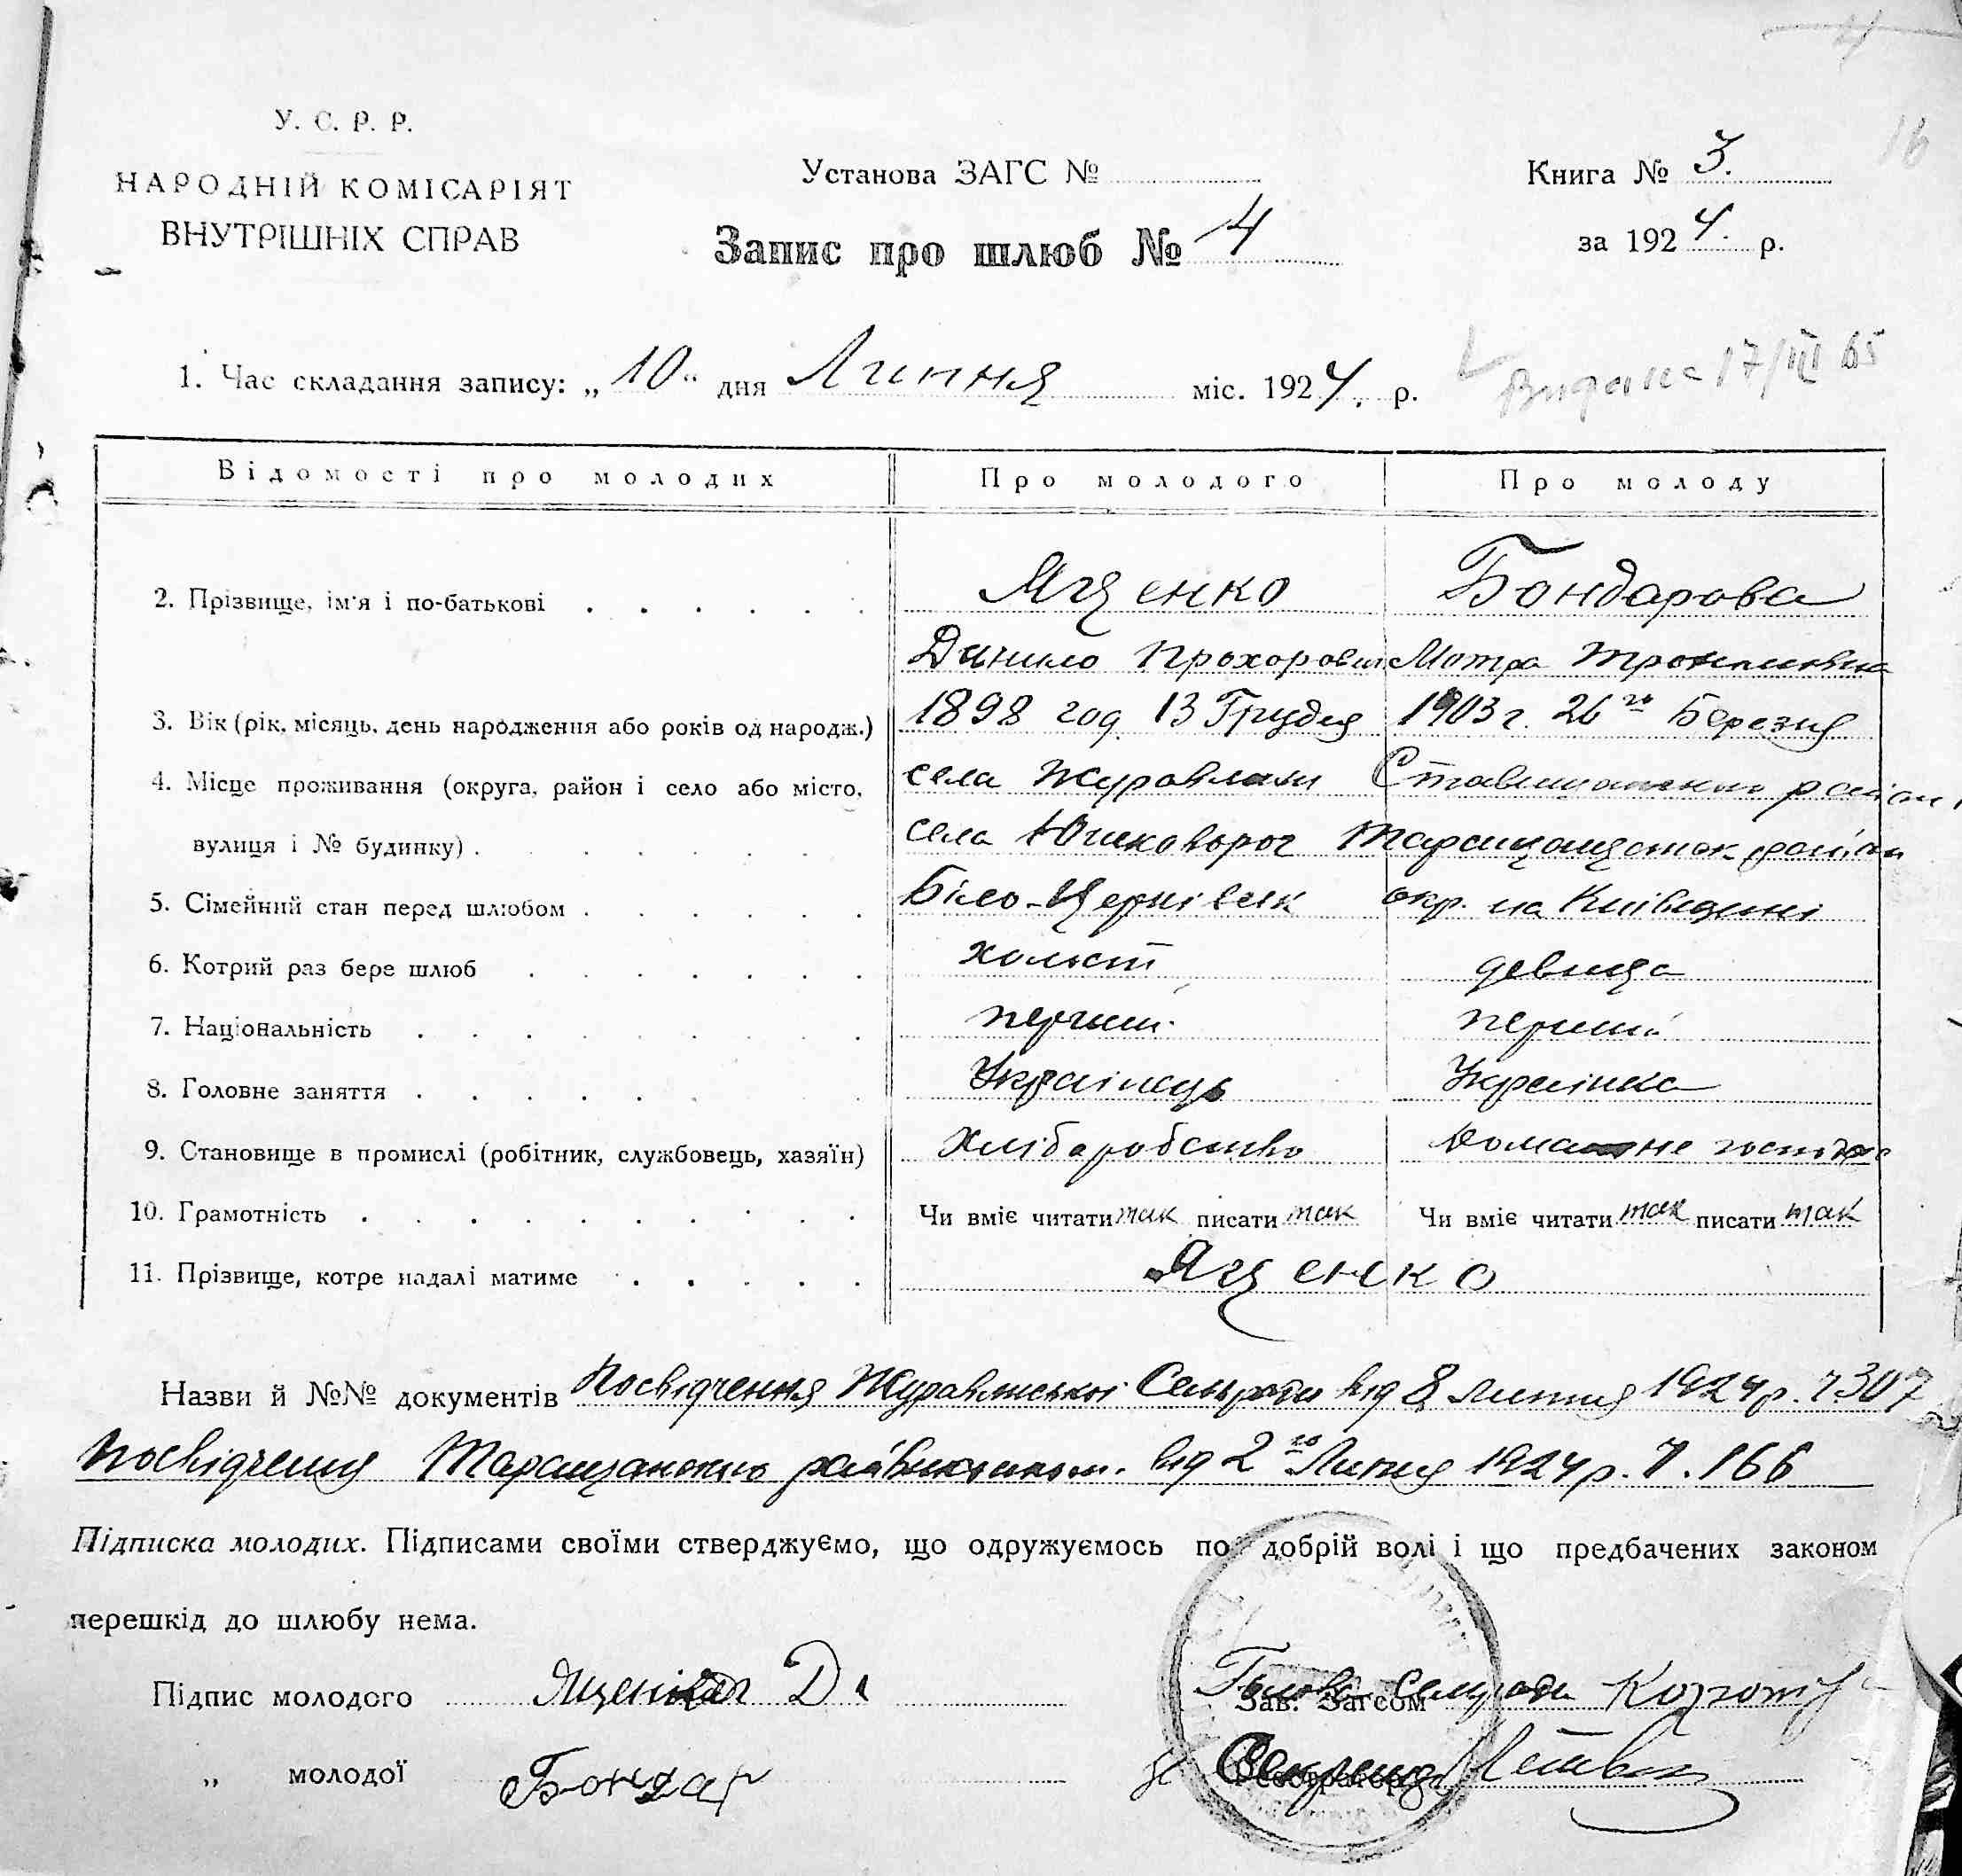 У. С. Р. Р.
НАРОДНІЙ КОМІСАРІЯТ
ВНУТРІШНІХ СПРАВ
Установа ЗАГС №
Запис про шлюб № 4
Книга № 3.
за 1924. р.
16
1. Час складання запису: „10“ дня Липня міс. 1924. р.
Видане 17/III 65
Відомості про молодих Про молодого Про молоду
2. Прізвище, ім'я і по-батькові Ященко Бондарова
Данило Прохорович Мотра
3. Вік (рік, місяць, день народження або років од народж.) 1898 год 13 Грудня 1903 г. 26го Березня
4. Місце проживання (округа, район і село або місто, села Журавлихи Ставищанского района
вулиця і № будинку) села Юшков рог Таращанськ район
5. Сімейний стан перед шлюбом Біло-Церківськ окр. на Київщині
6. Котрий раз бере шлюб холост девица
7. Національність перший перший
8. Головне заняття Українець Українка
9. Становище в промислі (робітник, службовець, хазяїн) Хліборобство
10. Грамотність Чи вміє читати так писати так Чи вміє читати так писати так
11. Прізвище, котре надалі матиме Ященко
Назви й №№ документів Посвідчення Журавлиської Сельради від 8 Липня 1924 р. №307
Посвідчення Таращанского райвиконком. від 2го Липня 1924 р. №. 166
Підписка молодих. Підписами своїми стверджуємо, що одружуємось по добрій волі і що предбачених законом
перешкід до шлюбу нема.
Підпис молодого Ященко Д
Голова Сельради
Зав. Загсом
„ молодої Бондар
Секретар
Реєстратор